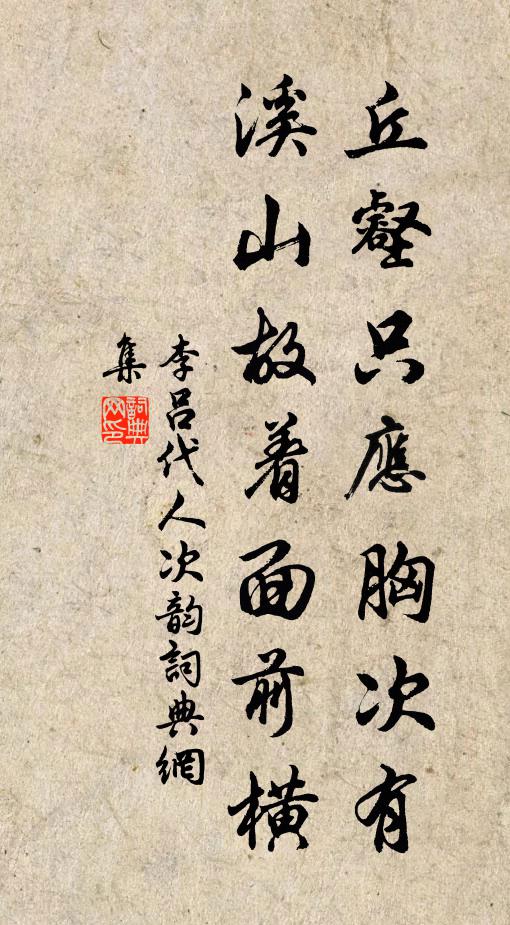 丘壑只應胸次有
溪山故着面前橫
李呂代人次韵詞典網
集
詞典
网印